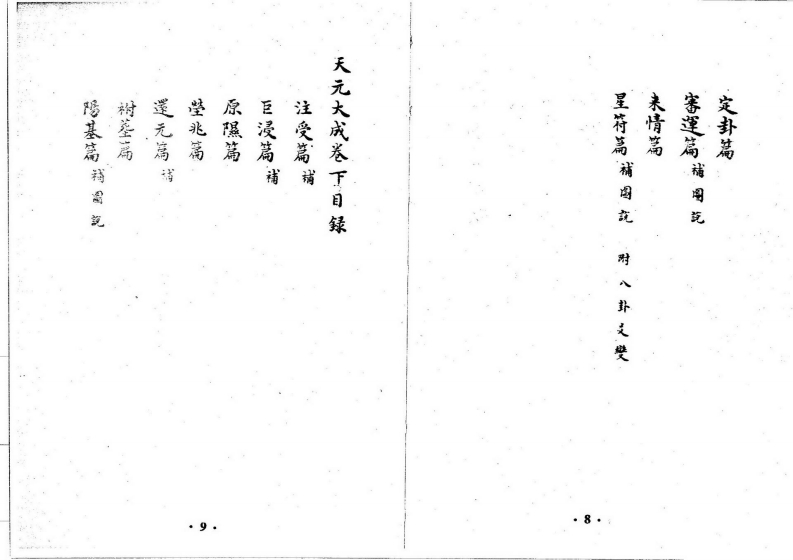 定卦篇
審運篇 補圖說
来情篇
星符篇 補圖說 附八卦爻變
· 8 ·
天元大成卷下目録
注受篇 補
巨浸篇 補
原隰篇
塋兆篇
還元篇 補
祔塟篇
陽基篇 補圖說
· 9 ·